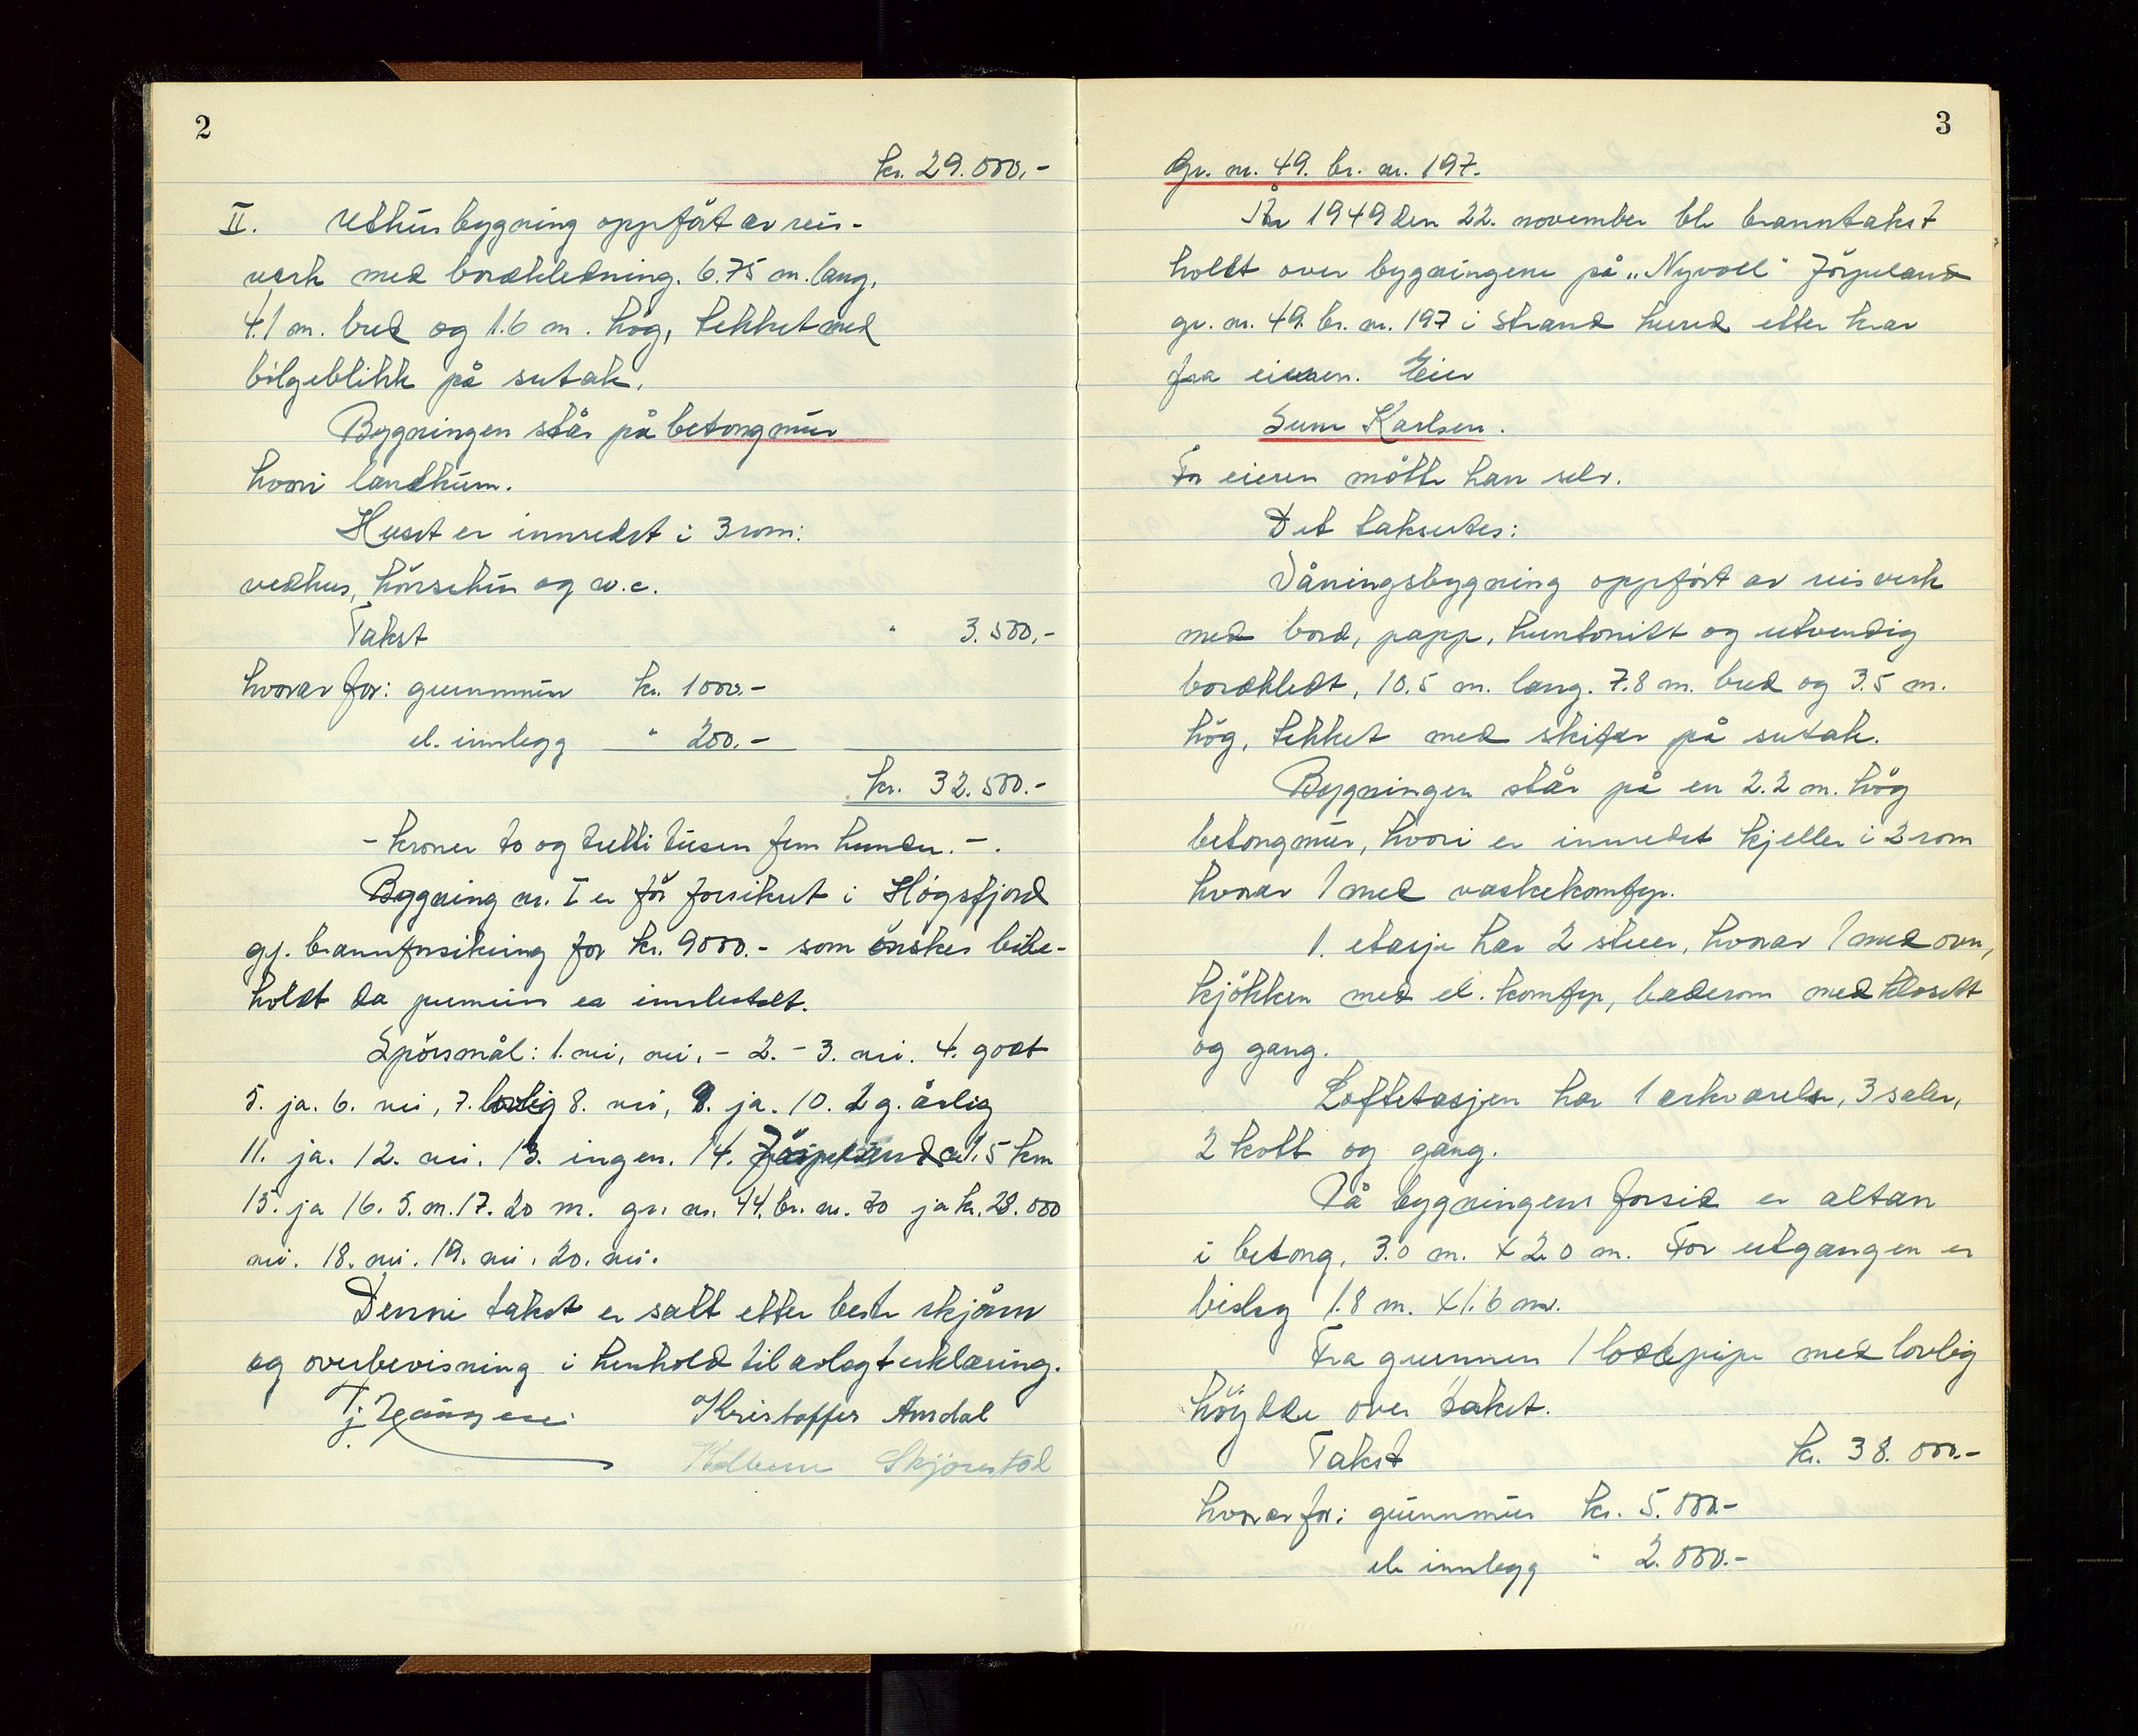 2
kr. 29.000.-
II. Uthusbygning oppført av reis-
verk med bordkledning. 6.75 m. lang,
4.1 m. bred og 1.6 m. høg, tekket med
bølgeblikk på sutak.
Bygningen står på betongmur
hvori landkum.
Huset er innredet i 3 rom:
vedhus, hønsehus og w.c.
Takst " 3.500.-
hvorav for: grunnmur kr. 1000.-
el. innlegg " 200.-
kr. 32.500.-
- kroner to og tretti tusen fem hundre. -.
Bygning nr. I er før forsikret i Høgsfjord
gj. brannforsikring for kr. 9000.- som ønskes bibe-
holdt da premien er innbetalt.
Spørsmål: 1. nei, nei, - 2. - 3. nei. 4. godt
5. ja. 6. nei, 7. lovlig 8. nei, 9. ja. 10. 2 g. årlig
11. ja. 12. nei. 13. ingen. 14. Jørpeland ca 1.5 km
15. ja 16. 5. m. 17. 20 m. gr. nr. 44. br. nr. 70 ja kr. 28.000
nei. 18. nei. 19. nei. 20. nei.
Denne takst er satt etter beste skjønn
og overbevisning i henhold til avlagt erklæring.
Kristoffer Amdal
Skjørestad
3
Gr. nr. 49. br. nr. 197.
År 1949 den 22. november ble branntakst
holdt over bygningene på „Nyvoll" Jørpeland
gr. nr. 49. br. nr. 197 i Strand herred etter krav
fra eieren. Eier
Sum Karlsen.
For eieren møtte han selv.
Det taksertes:
Våningsbygning oppført av reisverk
med bord, papp, huntonitt og utvendig
bordkledt, 10.5 m. lang. 7.8 m. bred og 3.5 m.
høg, tekket med skifer på sutak.
Bygningen står på en 2.2 m. høg
betongmur, hvori er innredet kjeller i 2 rom
hvorav 1 med vaskekomfyr.
1. etasje har 2 stuer, hvorav 1 med ovn,
kjøkken med el. komfyr, baderom med klosett
og gang.
Loftetasjen har 1 arkværelse, 3 saler,
2 kott og gang.
På bygningens forside er altan
i betong, 3.0 m. x 2.0 m. For utgangen er
bislag 1.8 m. x 1.6 m.
Fra grunnen 1 loddpipe med lovlig
høydde over taket.
Takst kr. 38.000.-
hvorav for: grunnmur kr. 5.000.-
el. innlegg " 2.000.-